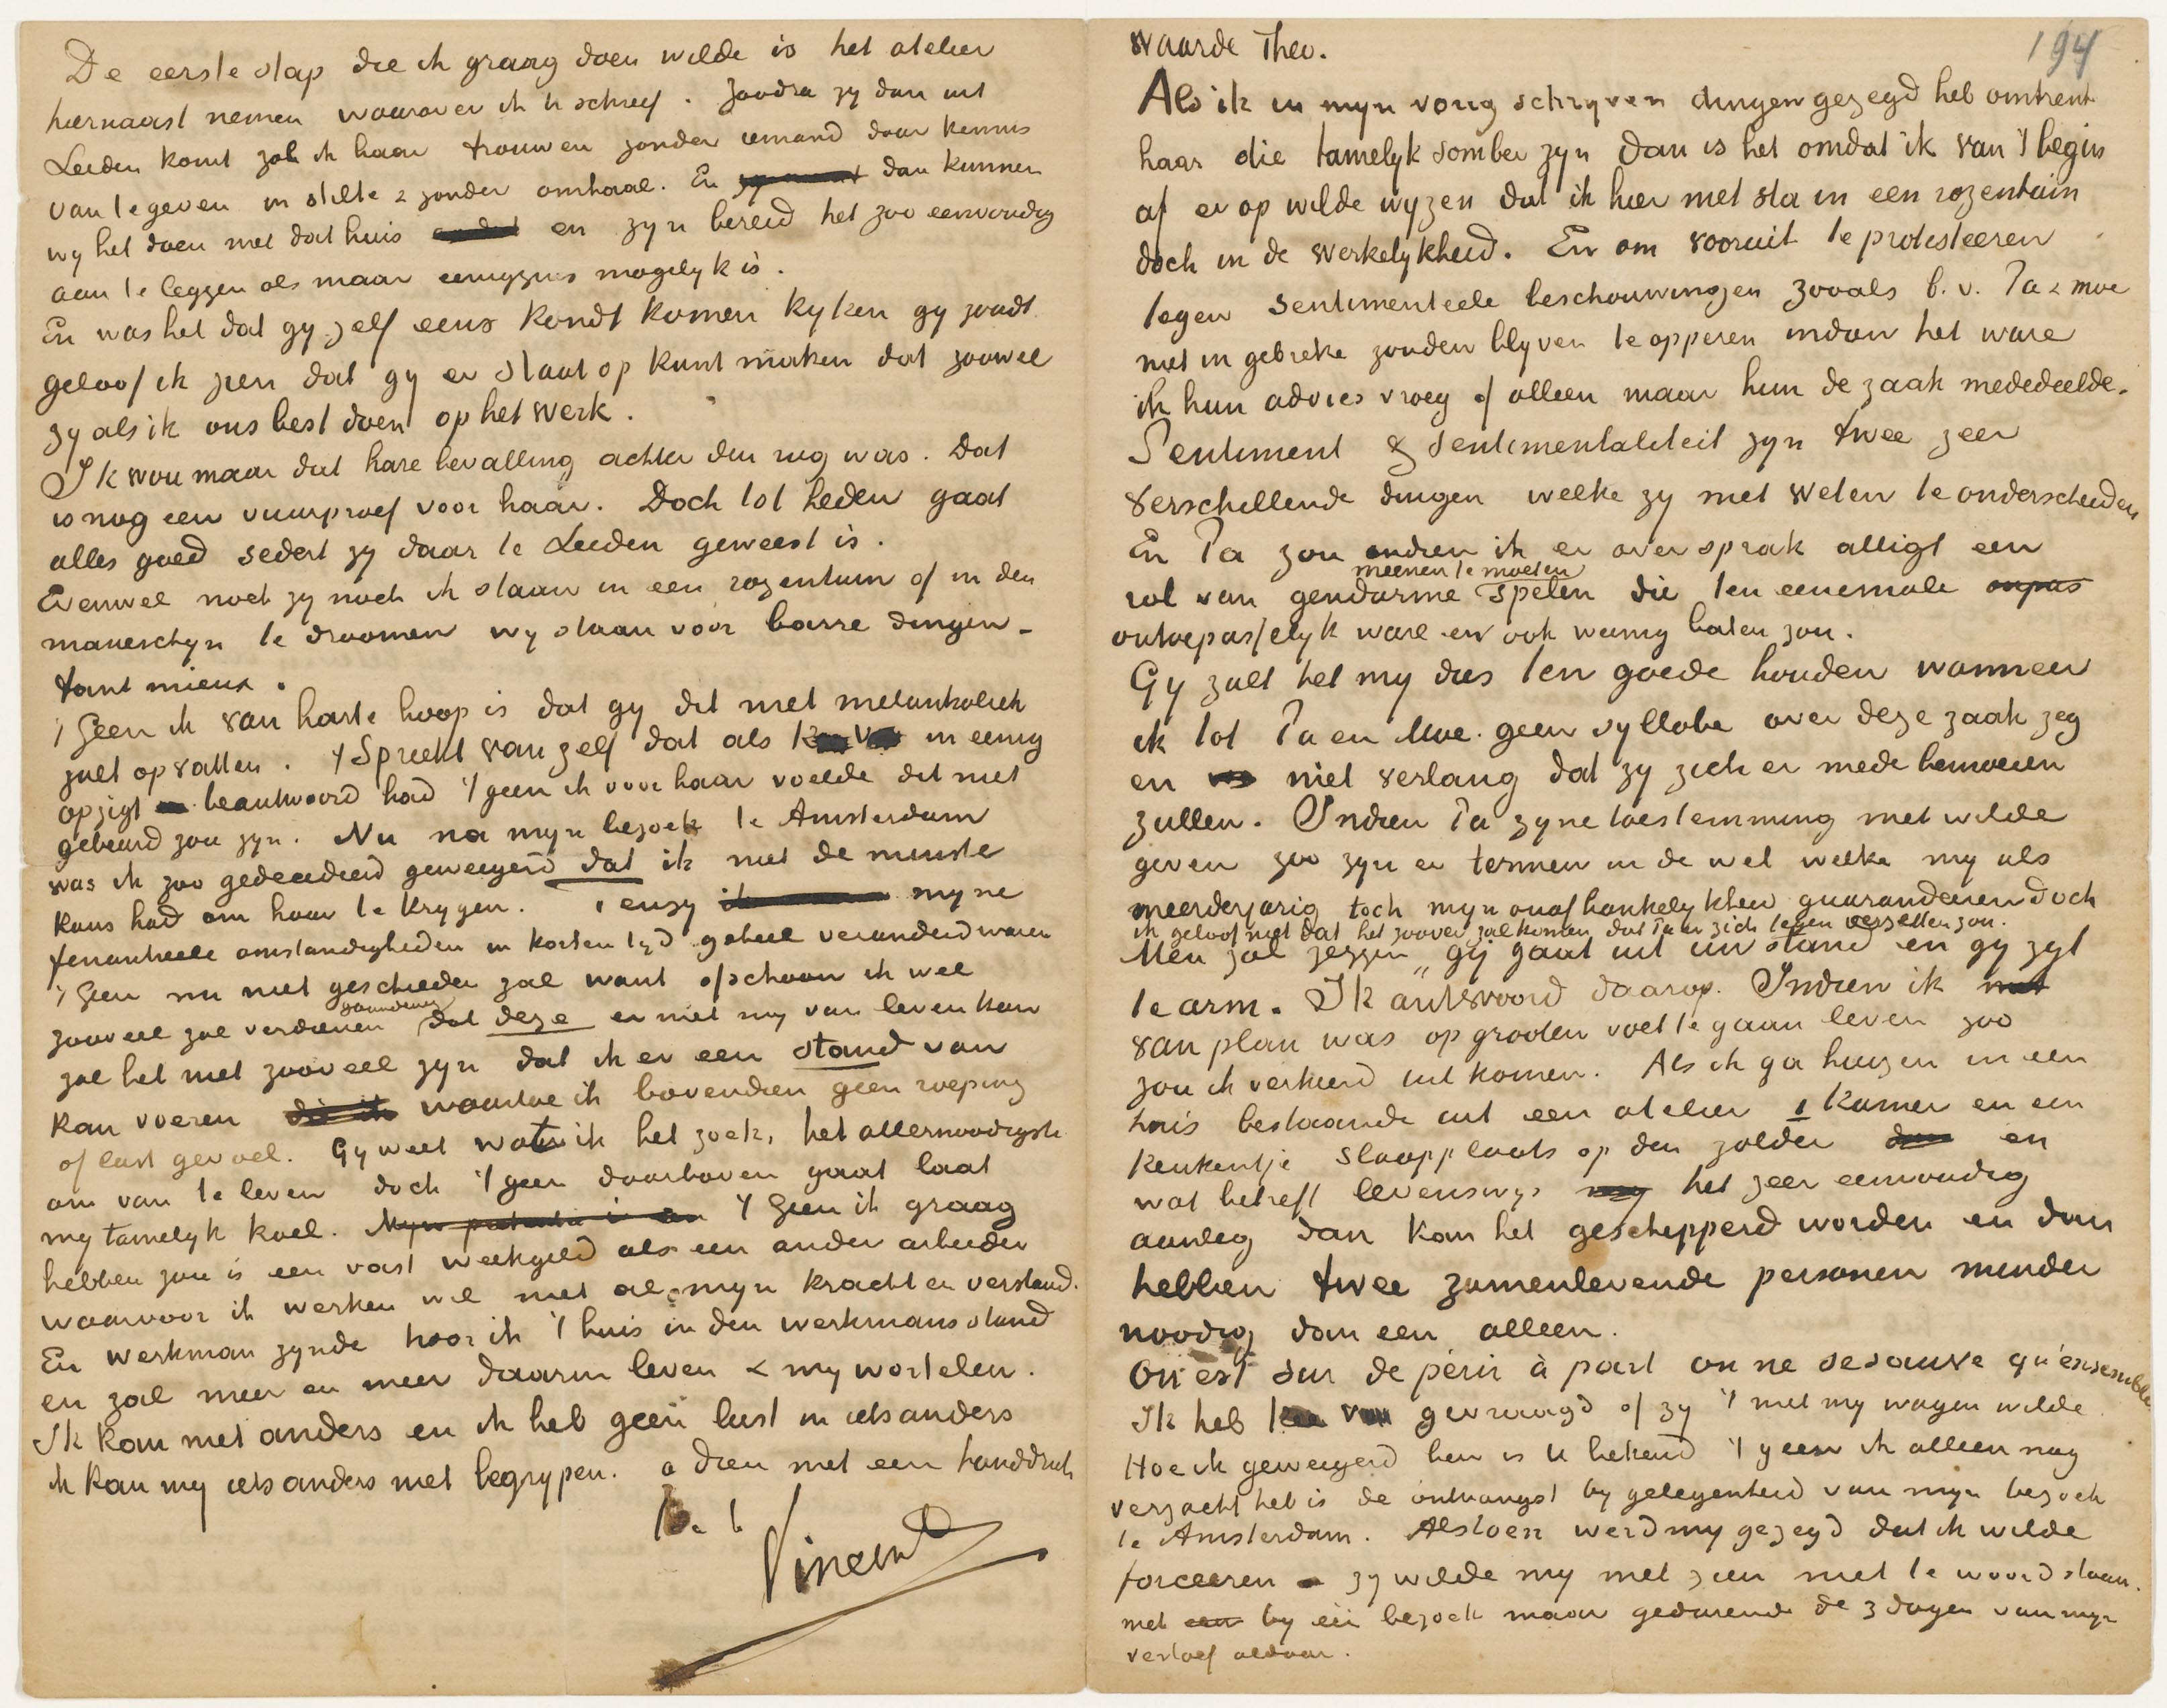 De eerste stap die ik graag doen wilde is het atelier
hiernaast nemen waarover ik U schreef. Zoodra zy dan uit
Leiden komt zal ik haar trouwen zonder iemand daar kennis
van te geven in stilte & zonder omhaal. En dan kunnen
wy het doen met dat huis en zyn bereid het zoo eenvoudig
aan te leggen als maar eenigzins mogelyk is.
En was het dat gy zelf eens kondt komen kyken gy zoudt
geloof ik zien dat gy er staat op kunt maken dat zoowel
zy als ik ons best doen op het werk.
Ik wou maar dat hare bevalling achter den rug was. Dat
is nog een vuurproef voor haar. Doch tot heden gaat
alles goed sedert zy daar te Leiden geweest is.
Evenwel noch zy noch ik staan in een rozentuin of in den
maneschyn te droomen wy staan voor barre dingen –
tant mieux.
't Geen ik van harte hoop is dat gy dit niet melankoliek
zult opvatten. 't Spreekt van zelf dat als K V in eenig
opzigt beantwoord had 't geen ik voor haar voelde dit niet
gebeurd zou zyn. Nu na myn bezoek te Amsterdam
was ik zoo gedecideerd geweigerd dat ik niet de minste
kans had om haar te krygen. Tenzy myne
finantieele omstandigheden in korten tyd geheel veranderd waren
't geen nu niet geschieden zal want ofschoon ik wel
gaandeweg
zooveel zal verdienen dat deze er met my van leven kan
zal het niet zooveel zyn dat ik er een stand van
kan voeren die ik waartoe ik bovendien geen roeping
of lust gevoel. Gy weet wat ik het zoek, het allernoodigste
om van te leven doch 't geen daarboven gaat laat
my tamelyk koel. 't Geen ik graag
hebben zou is een vast weekgeld als een ander arbeider
waarvoor ik werken wil met al myn kracht en verstand.
En werkman zynde hoor ik 't huis in den werkmansstand
en zal meer en meer daarin leven & my wortelen.
Ik kan niet anders en ik heb geen lust in iets anders
ik kan my iets anders niet begrypen. adieu met een handdruk
t. à t.
Vincent
194
Waarde Theo.
Als ik in myn vorig schryven dingen gezegd heb omtrent
haar die tamelyk somber zyn dan is het omdat ik van 't begin
af er op wilde wyzen dat ik hier niet sta in een rozentuin
doch in de werkelykheid. En om vooruit te protesteeren
tegen sentimenteele beschouwingen zooals b.v. Pa & moe
niet in gebreke zouden blyven te opperen indien het ware
ik hun advies vroeg of alleen maar hun de zaak mededeelde.
Sentiment & sentimentaliteit zyn twee zeer
verschillende dingen welke zy niet weten te onderscheiden
En Pa zou indien ik er over sprak alligt een
meenen te moeten
rol van gendarme spelen die ten eenemale onpas
ontoepasselyk ware en ook weinig baten zou.
Gy zult het my dus ten goede houden wanneer
ik tot Pa en Moe geen syllabe over deze zaak zeg
en niet verlang dat zy zich er mede bemoeien
zullen. Indien Pa zyne toestemming niet wilde
geven zoo zyn er termen in de wet welke my als
meerderjarig toch myn onafhankelykheid guarandeeren doch
ik geloof niet dat het zoover zal komen dat Pa er zich tegen verzetten zou.
Men zal zeggen „gij gaat uit uw stand en gy zyt
te arm. Ik antwoord daarop. Indien ik met
van plan was op grooten voet te gaan leven zoo
zou ik verkeerd uitkomen. Als ik ga huizen in een
huis bestaande uit een atelier 1 kamer en een
keukentje slaapplaats op den zolder en
wat betreft levenswys het zeer eenvoudig
aanleg dan kan het geschepperd worden en dan
hebben twee zamenlevende personen minder
noodig dan een alleen.
On est sur de périr à part on ne se sauve qu'ensemble.
Ik heb Kee Vos gevraagd of zy 't met my wagen wilde
Hoe ik geweigerd ben is U bekend 't geen ik alleen nog
verzacht heb is de ontvangst by gelegenheid van myn bezoek
te Amsterdam. Alstoen werd my gezegd dat ik wilde
forceeren – zy wilde my niet zien niet te woord staan.
niet een by één bezoek maar gedurende de 3 dagen van myn
verloef aldaar.